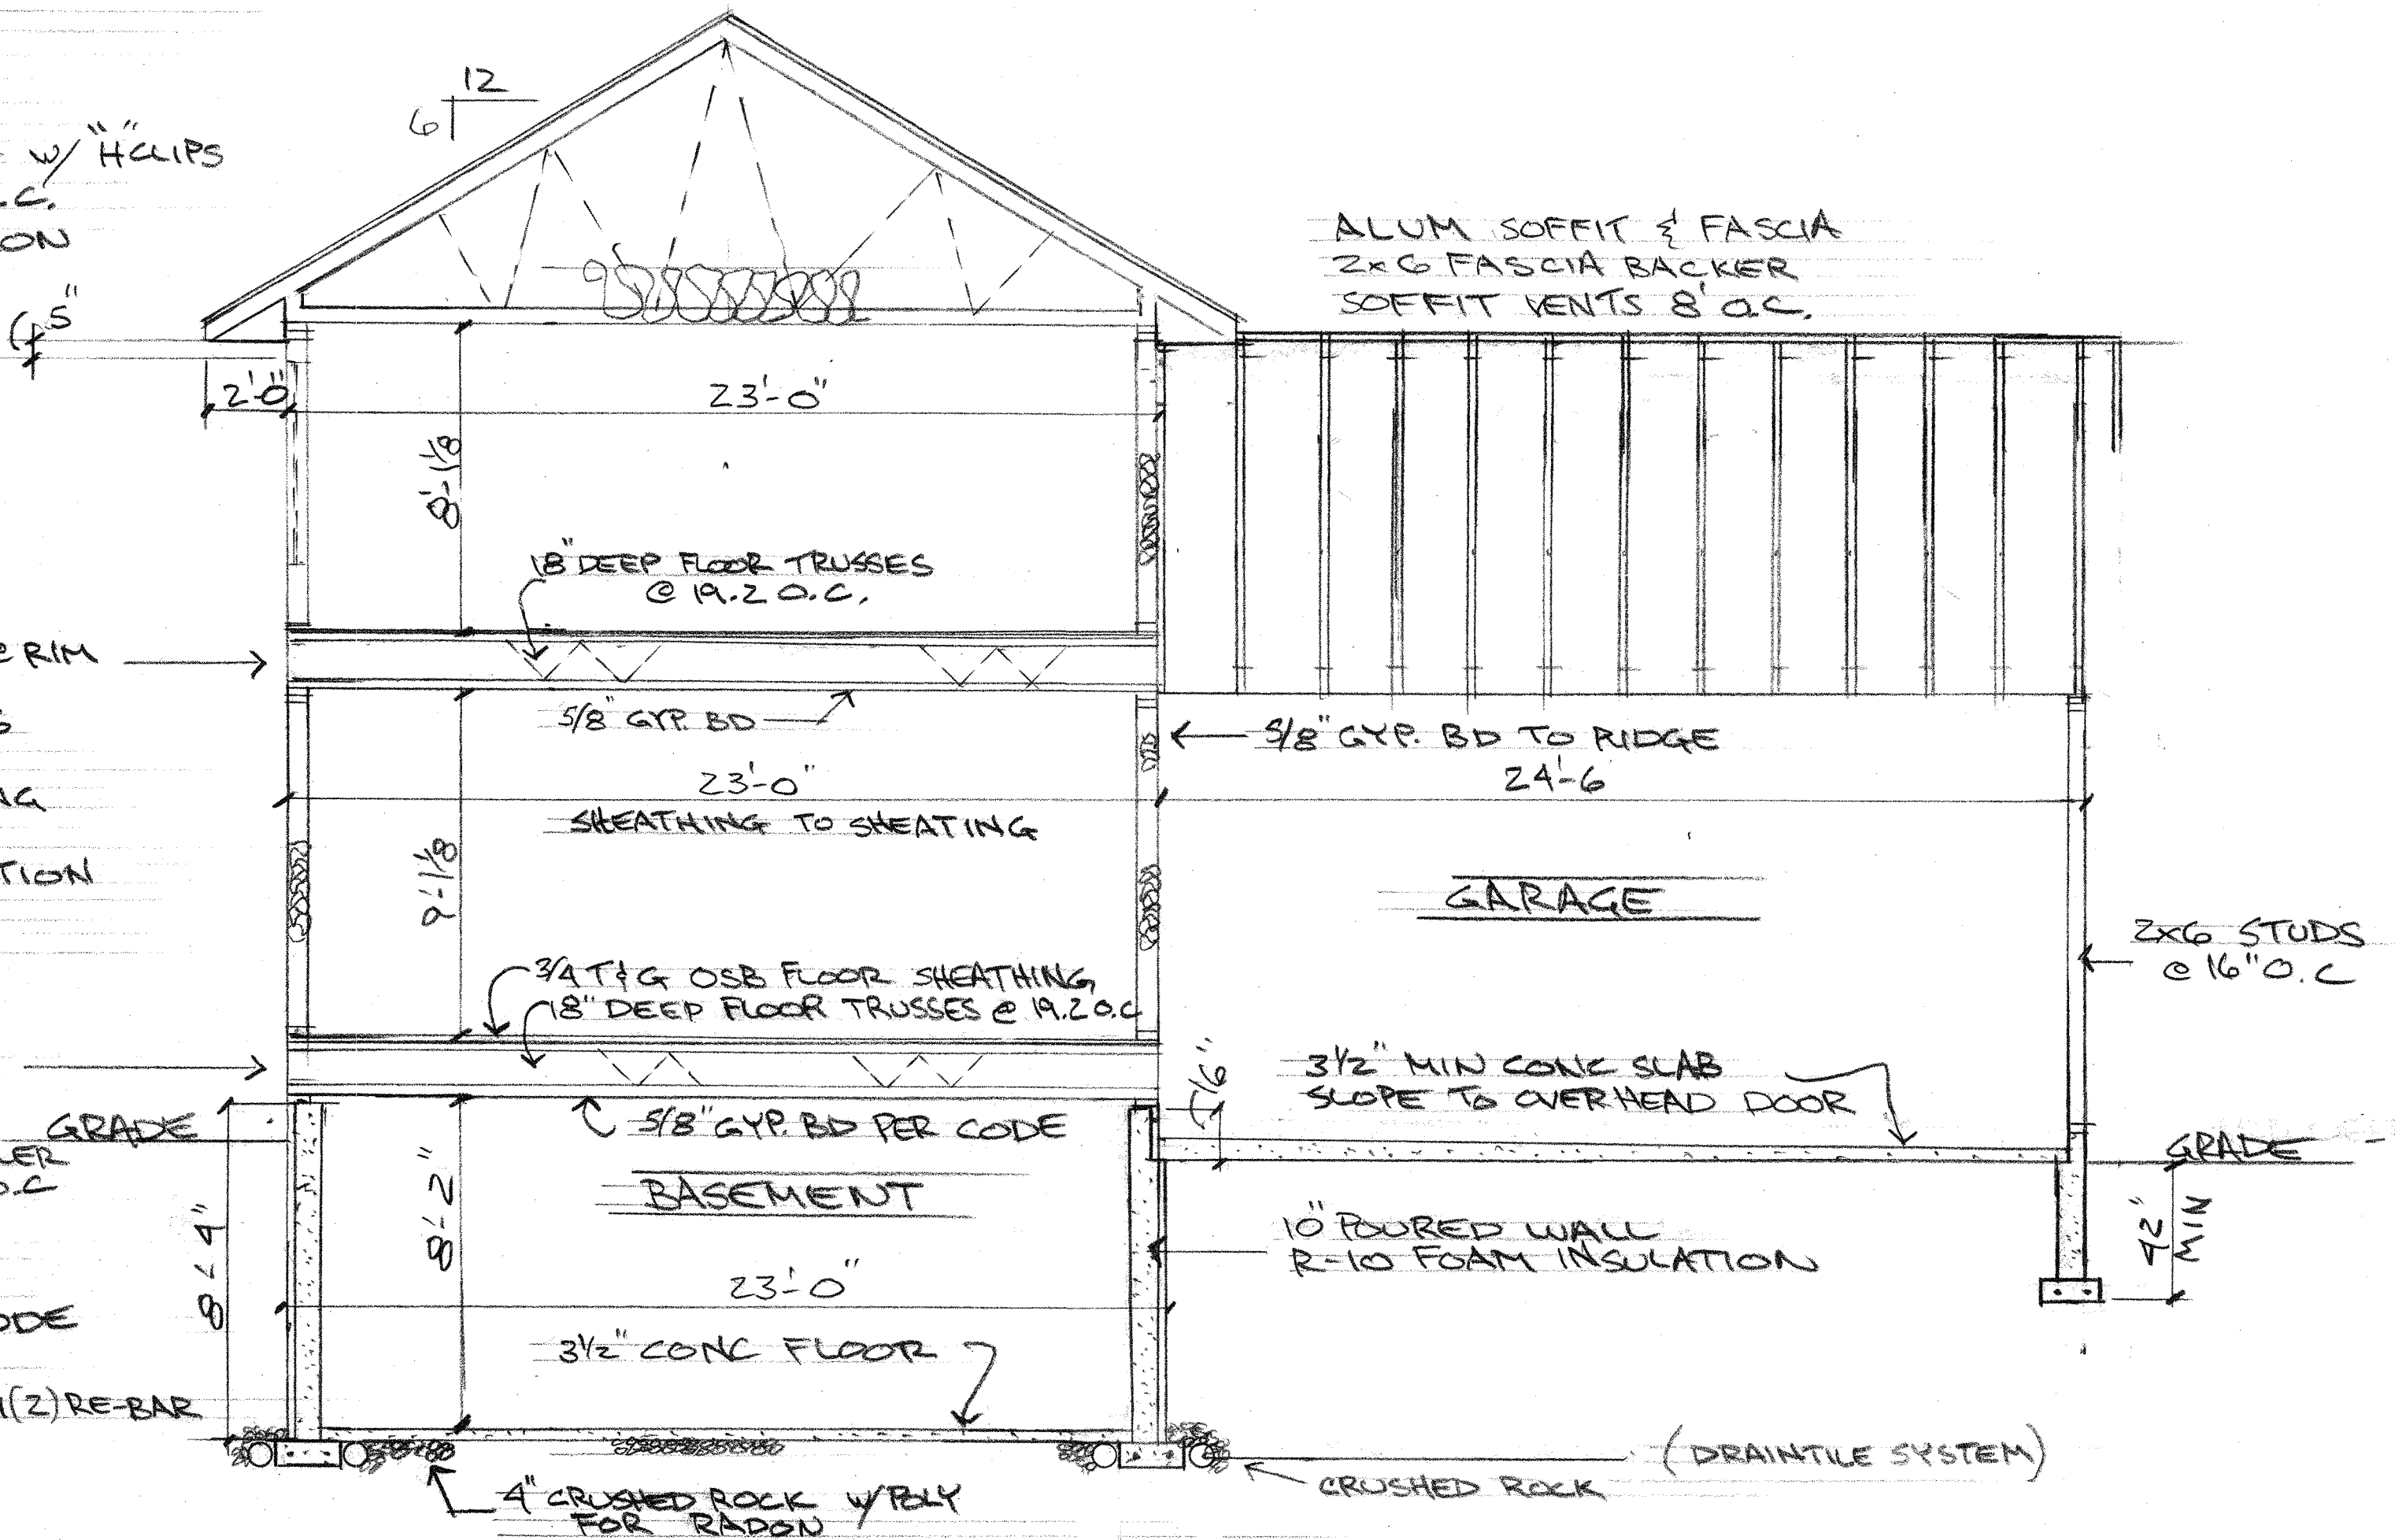 12
6
w/ "H" CLIPS
.C.
ON
5"
ALUM SOFFIT & FASCIA
2x6 FASCIA BACKER
SOFFIT VENTS 8' O.C.
2'-0"
23'-0"
8'-1 1/8
18" DEEP FLOOR TRUSSES
@ 19.2 O.C.
RIM
5/8" GYP. BD
5/8" GYP. BD TO RIDGE
23'-0"
24'-6
SHEATHING TO SHEATING
9'-1 1/8
TION
GARAGE
2x6 STUDS
@ 16" O.C
3/4 T&G OSB FLOOR SHEATHING
18" DEEP FLOOR TRUSSES @ 19.2 O.C
3 1/2" MIN CONC SLAB
SLOPE TO OVERHEAD DOOR
GRADE
LER
O.C
5/8" GYP. BD PER CODE
GRADE
BASEMENT
8'-4"
8'-2"
10" POURED WALL
R-10 FOAM INSULATION
42"
MIN
23'-0"
ODE
3 1/2" CONC FLOOR
(2) RE-BAR
(DRAINTILE SYSTEM)
CRUSHED ROCK
4" CRUSHED ROCK w/POLY
FOR RADON